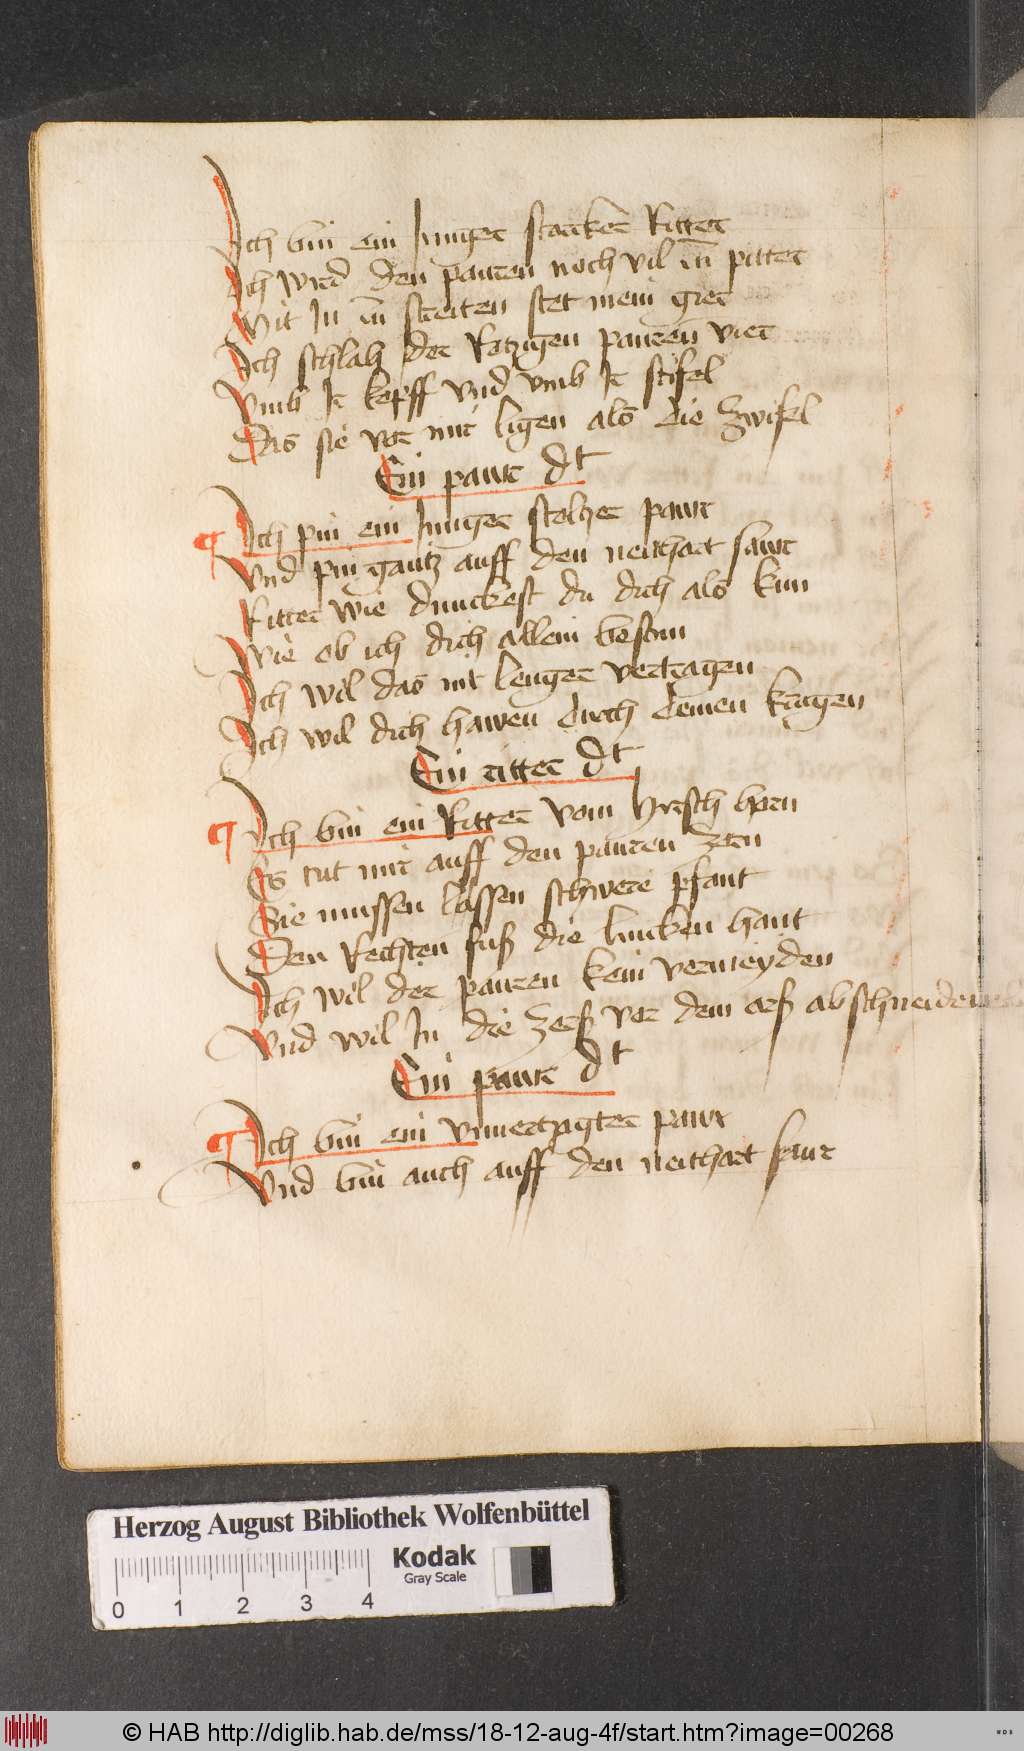 Ich bin ein Junger starcker Ritter
Ich wird den pauren noch vil zu pitter
Mit In zu streiten stet mein gier
Ich schlah der Retzigen pauren vier
Vmb Ir kopff vnd vmb Ir stifel
Das sie vor mir ligen als die Zwifel
Ein pawr dt
Ich pin ein Junger stolzer pawr
Vnd pin gantz auff den neithart sawr
Ritter wie dunckest du dich als kun
Wie ob ich dich allein besten
Ich wil das nit lenger vertragen
Ich wil dich hawen durch deinen kragen
Ein ritter dt
Ich bin ein Ritter vom hirsch horn
Es tut mir auff den pauren zorn
Sie mussen lassen schwere pfant
Den Rechten fuß die lincken hant
Ich wil der pauren kein vermeyden
Vnd wil In die Zerß vor dem arß abschneiden
Ein pawr dt
Ich bin ein vnuertzagter pawr
Vnd bin auch auff den neithart sawr
Herzog August Bibliothek Wolfenbüttel
Kodak
Gray Scale
0 1 2 3 4
© HAB http://diglib.hab.de/mss/18-12-aug-4f/start.htm?image=00268